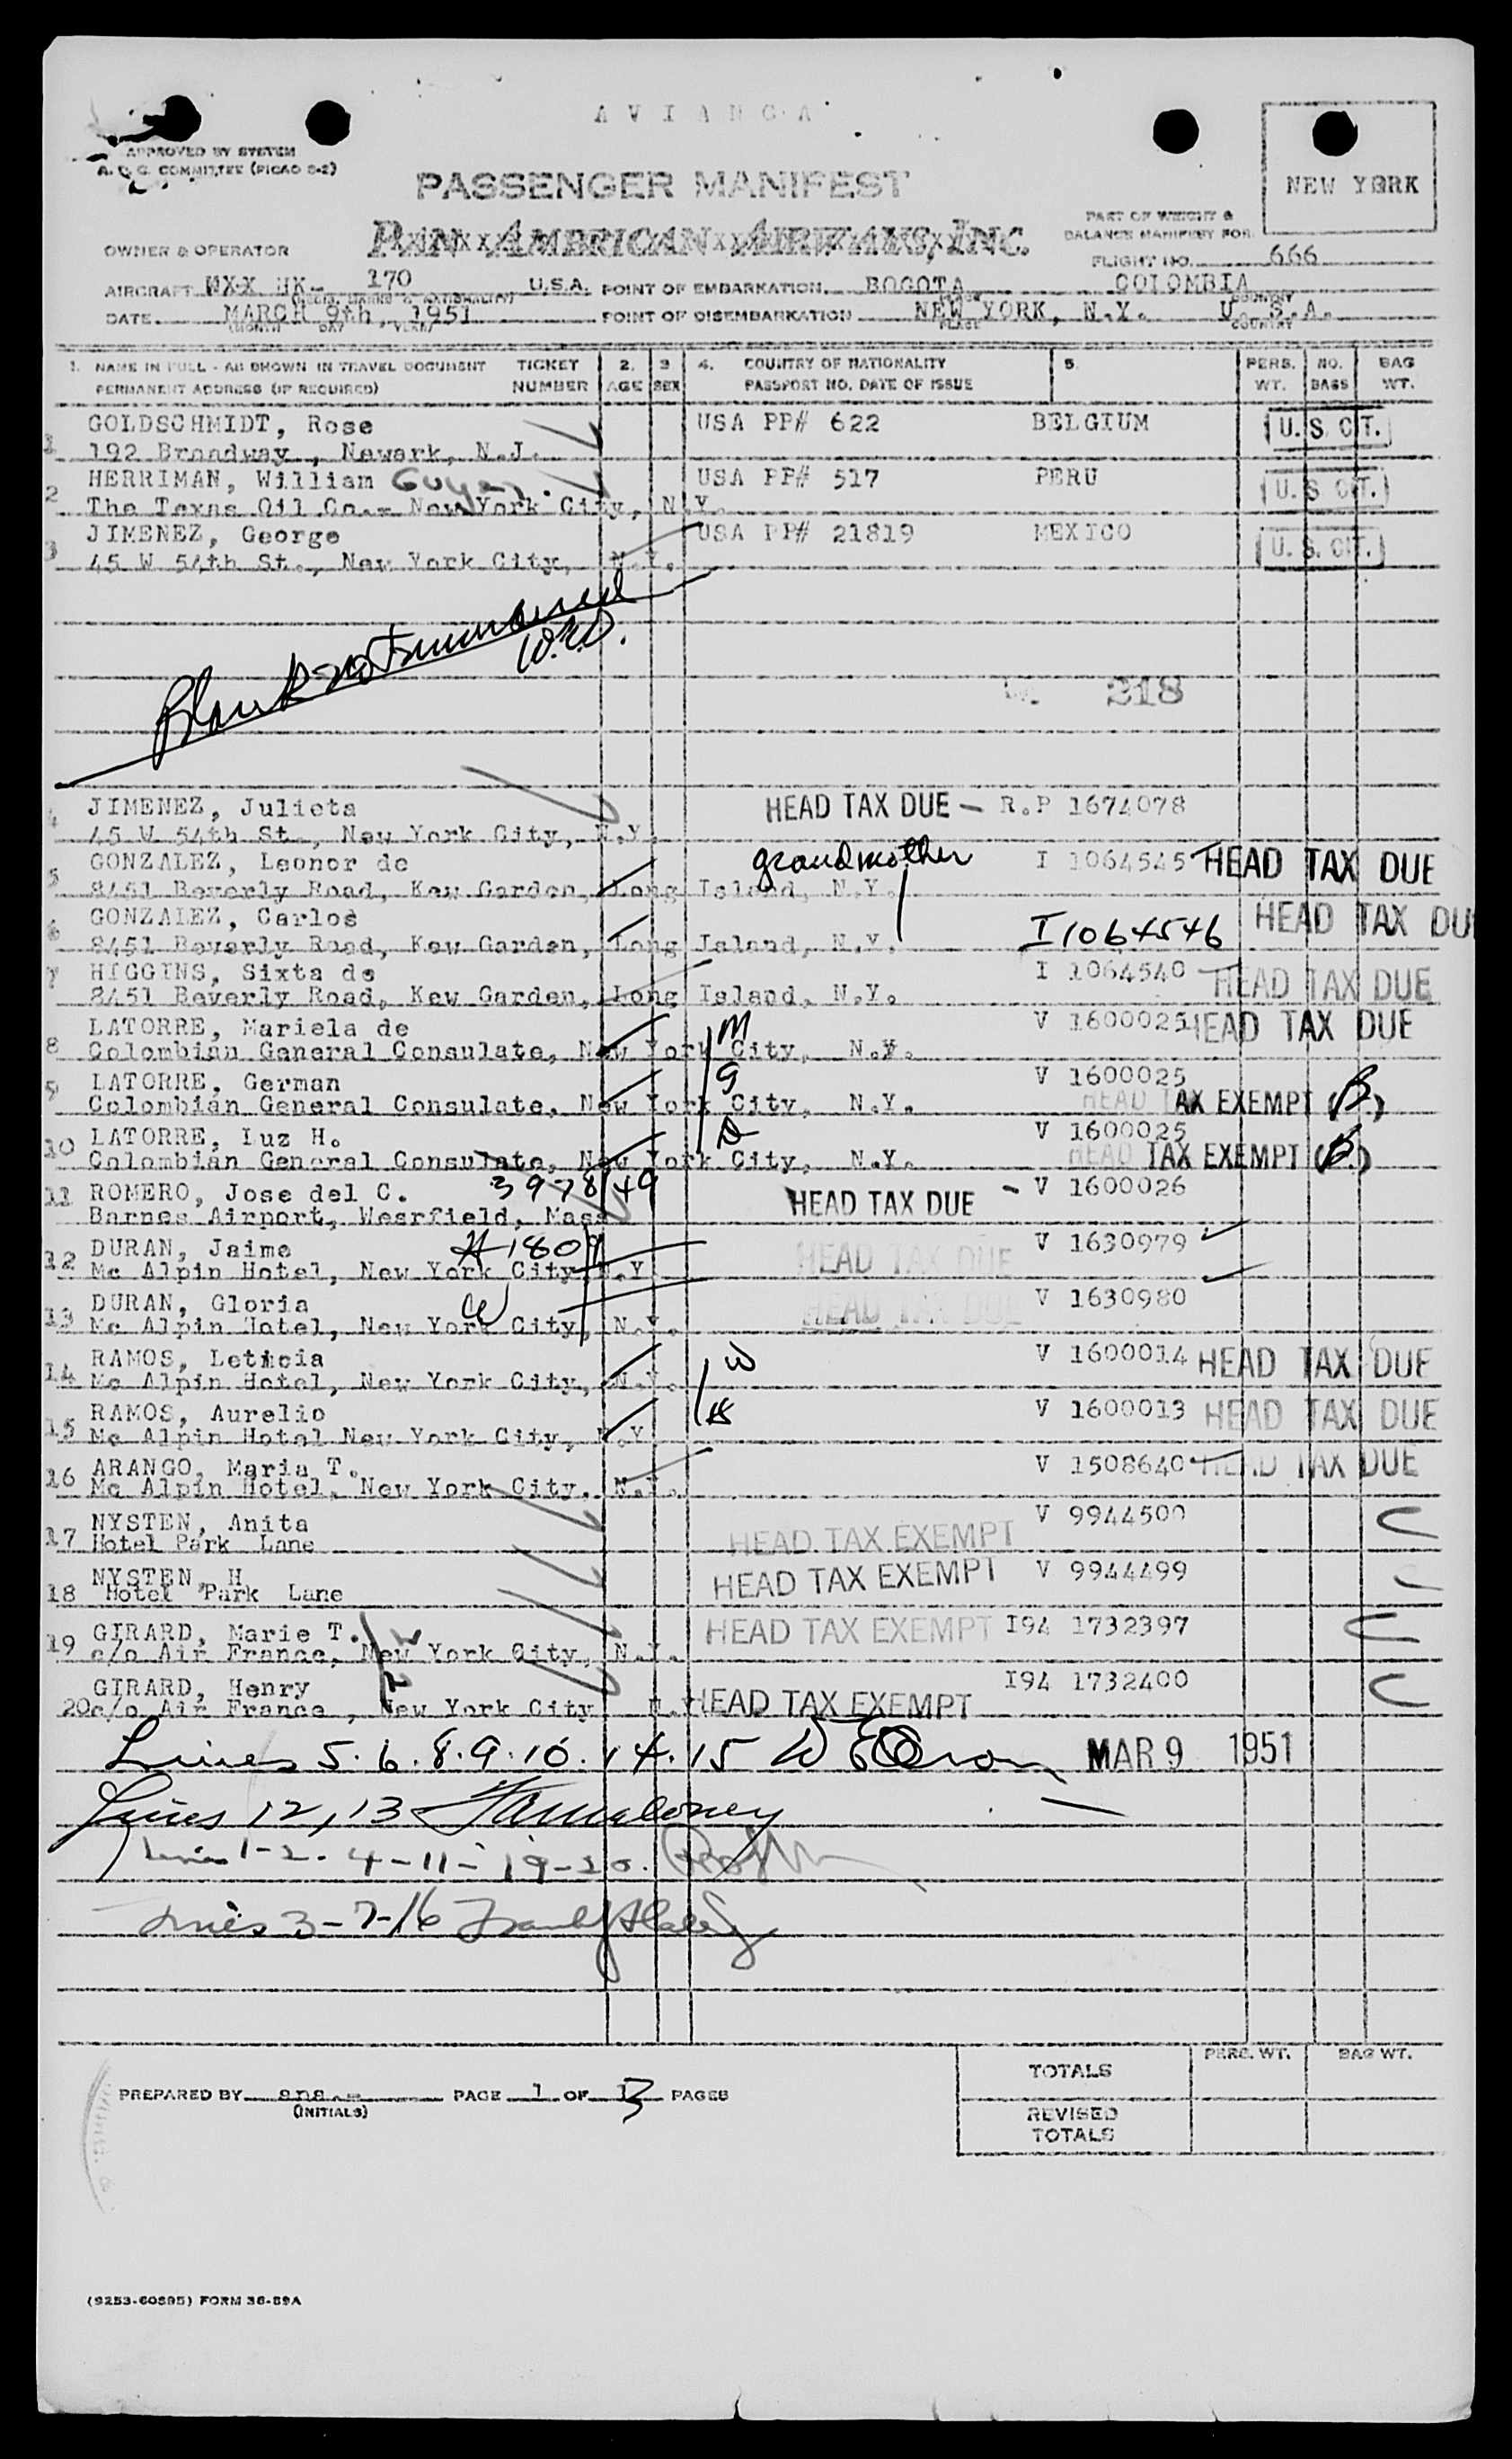 A V I A N C A
APPROVED BY SYSTEM
A. O. C. COMMITTEE (PICAO 5-2)
PASSENGER MANIFEST
NEW YORK
PAN AMERICAN AIRWAYS, INC.
PART OF WEIGHT &
BALANCE MANIFEST FOR
OWNER & OPERATOR
FLIGHT NO. 666
AIRCRAFT HK- 170 U.S.A. POINT OF EMBARKATION. BOGOTA COLOMBIA
(REGIS. MARKS & NATIONALITY) PLACE COUNTRY
DATE. MARCH 9th, 1951 POINT OF DISEMBARKATION NEW YORK, N.Y. U. S.A.
(MONTH DAY YEAR) PLACE COUNTRY
1. NAME IN FULL - AS SHOWN IN TRAVEL DOCUMENT TICKET 2. 3 4. COUNTRY OF NATIONALITY 5. PERS. NO. BAG
PERMANENT ADDRESS (IF REQUIRED) NUMBER AGE SEX PASSPORT NO. DATE OF ISSUE WT. BAGS WT.
1 GOLDSCHMIDT, Rose USA PP# 622 BELGIUM U. S. CIT.
192 Broadway , Newark, N.J.
2 HERRIMAN, William USA PP# 517 PERU U. S. CIT.
The Texas Oil Co.- New York City, N.Y.
3 JIMENEZ, George USA PP# 21819 MEXICO U. S. CIT.
45 W 54th St., New York City, N.Y.
Blank not manned
W.E.D.
218
4 JIMENEZ, Julieta HEAD TAX DUE - R.P 1674078
45 W 54th St., New York City, N.Y.
5 GONZALEZ, Leonor de grandmother I 1064545 HEAD TAX DUE
8451 Beverly Road, Kew Garden, Long Island, N.Y.
6 GONZALEZ, Carlos I 1064546 HEAD TAX DU
8451 Beverly Road, Kew Garden, Long Island, N.Y.
7 HIGGINS, Sixta de I 1064540 HEAD TAX DUE
8451 Beverly Road, Kew Garden, Long Island, N.Y.
8 LATORRE, Mariela de M V 1600025 HEAD TAX DUE
Colombian General Consulate, New York City, N.Y.
9 LATORRE, German V 1600025
Colombian General Consulate, New York City, N.Y. HEAD TAX EXEMPT (B.)
10 LATORRE, Luz H. D V 1600025
Colombian General Consulate, New York City, N.Y. HEAD TAX EXEMPT (B.)
11 ROMERO, Jose del C. 3978/49 HEAD TAX DUE - V 1600026
Barnes Airport, Wesrfield, Mass
12 DURAN, Jaime HEAD TAX DUE V 1630979
Mc Alpin Hotel, New York City, N.Y.
13 DURAN, Gloria W HEAD TAX DUE V 1630980
Mc Alpin Hotel, New York City, N.Y.
14 RAMOS, Leticia W V 1600014 HEAD TAX DUE
Mc Alpin Hotel, New York City, N.Y.
15 RAMOS, Aurelio H V 1600013 HEAD TAX DUE
Mc Alpin Hotel New York City, N.Y
16 ARANGO, Maria T. V 1508640 HEAD TAX DUE
Mc Alpin Hotel, New York City, N.Y.
17 NYSTEN, Anita HEAD TAX EXEMPT V 9944500
Hotel Park Lane
18 NYSTEN, H HEAD TAX EXEMPT V 9944499
Hotel Park Lane
19 GIRARD, Marie T. HEAD TAX EXEMPT I94 1732397
c/o Air France, New York City, N.Y.
20 GIRARD, Henry HEAD TAX EXEMPT I94 1732400
c/o Air France , New York City N.Y
Lines 5. 6. 8. 9. 10. 14. 15 MAR 9 1951
Lines 12, 13
Lines 1-2. 4-11- 19-20.
Lines 3-7-16
TOTALS PERS. WT. BAG WT.
PREPARED BY ana.- PAGE 1 OF 3 PAGES
(INITIALS)
REVISED
TOTALS
(9253-60895) FORM 36-59A